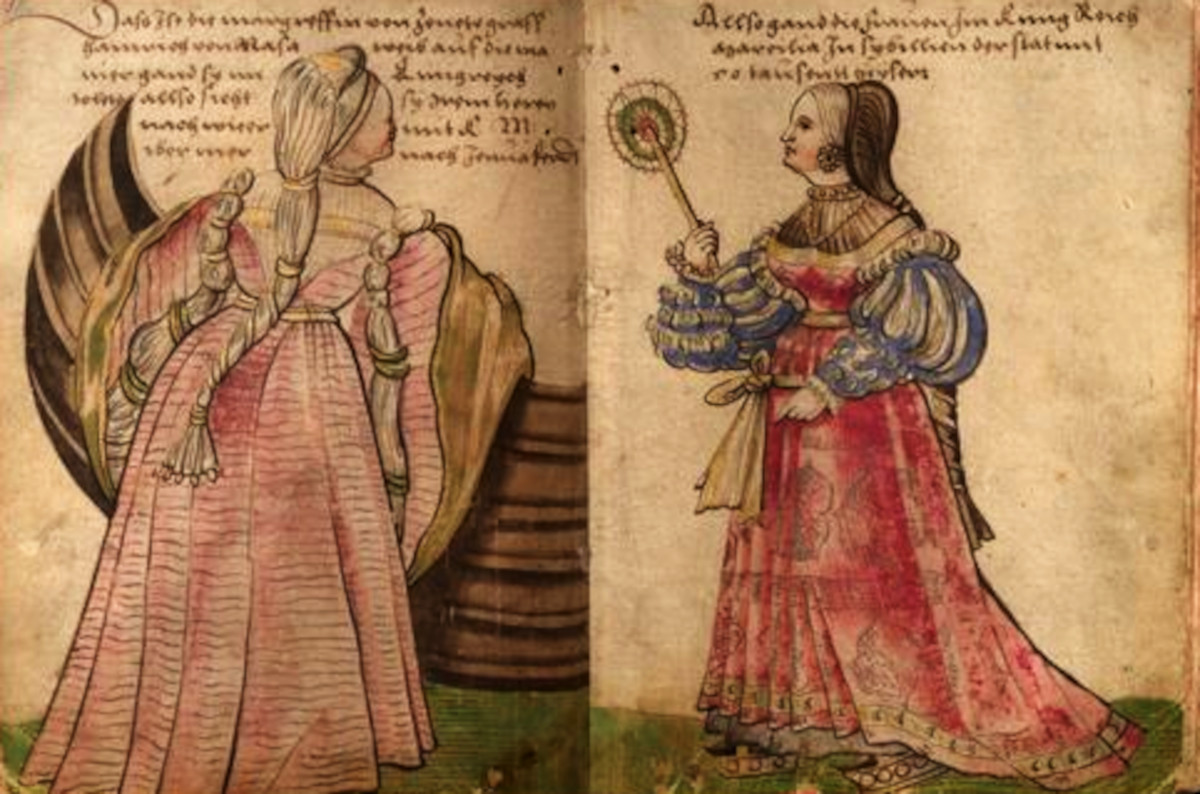 Dass Ist die margreffin von Zenete graff
hainrichs von Nasa weib auf die ma
nier gand sy im Kungreych
allso sicht sy irem heren
nach wider mit K M
iber mer nach Jenua
Allso gand die frauen Im Kung Reich
In sybillien der stat mit
tausentt heyser